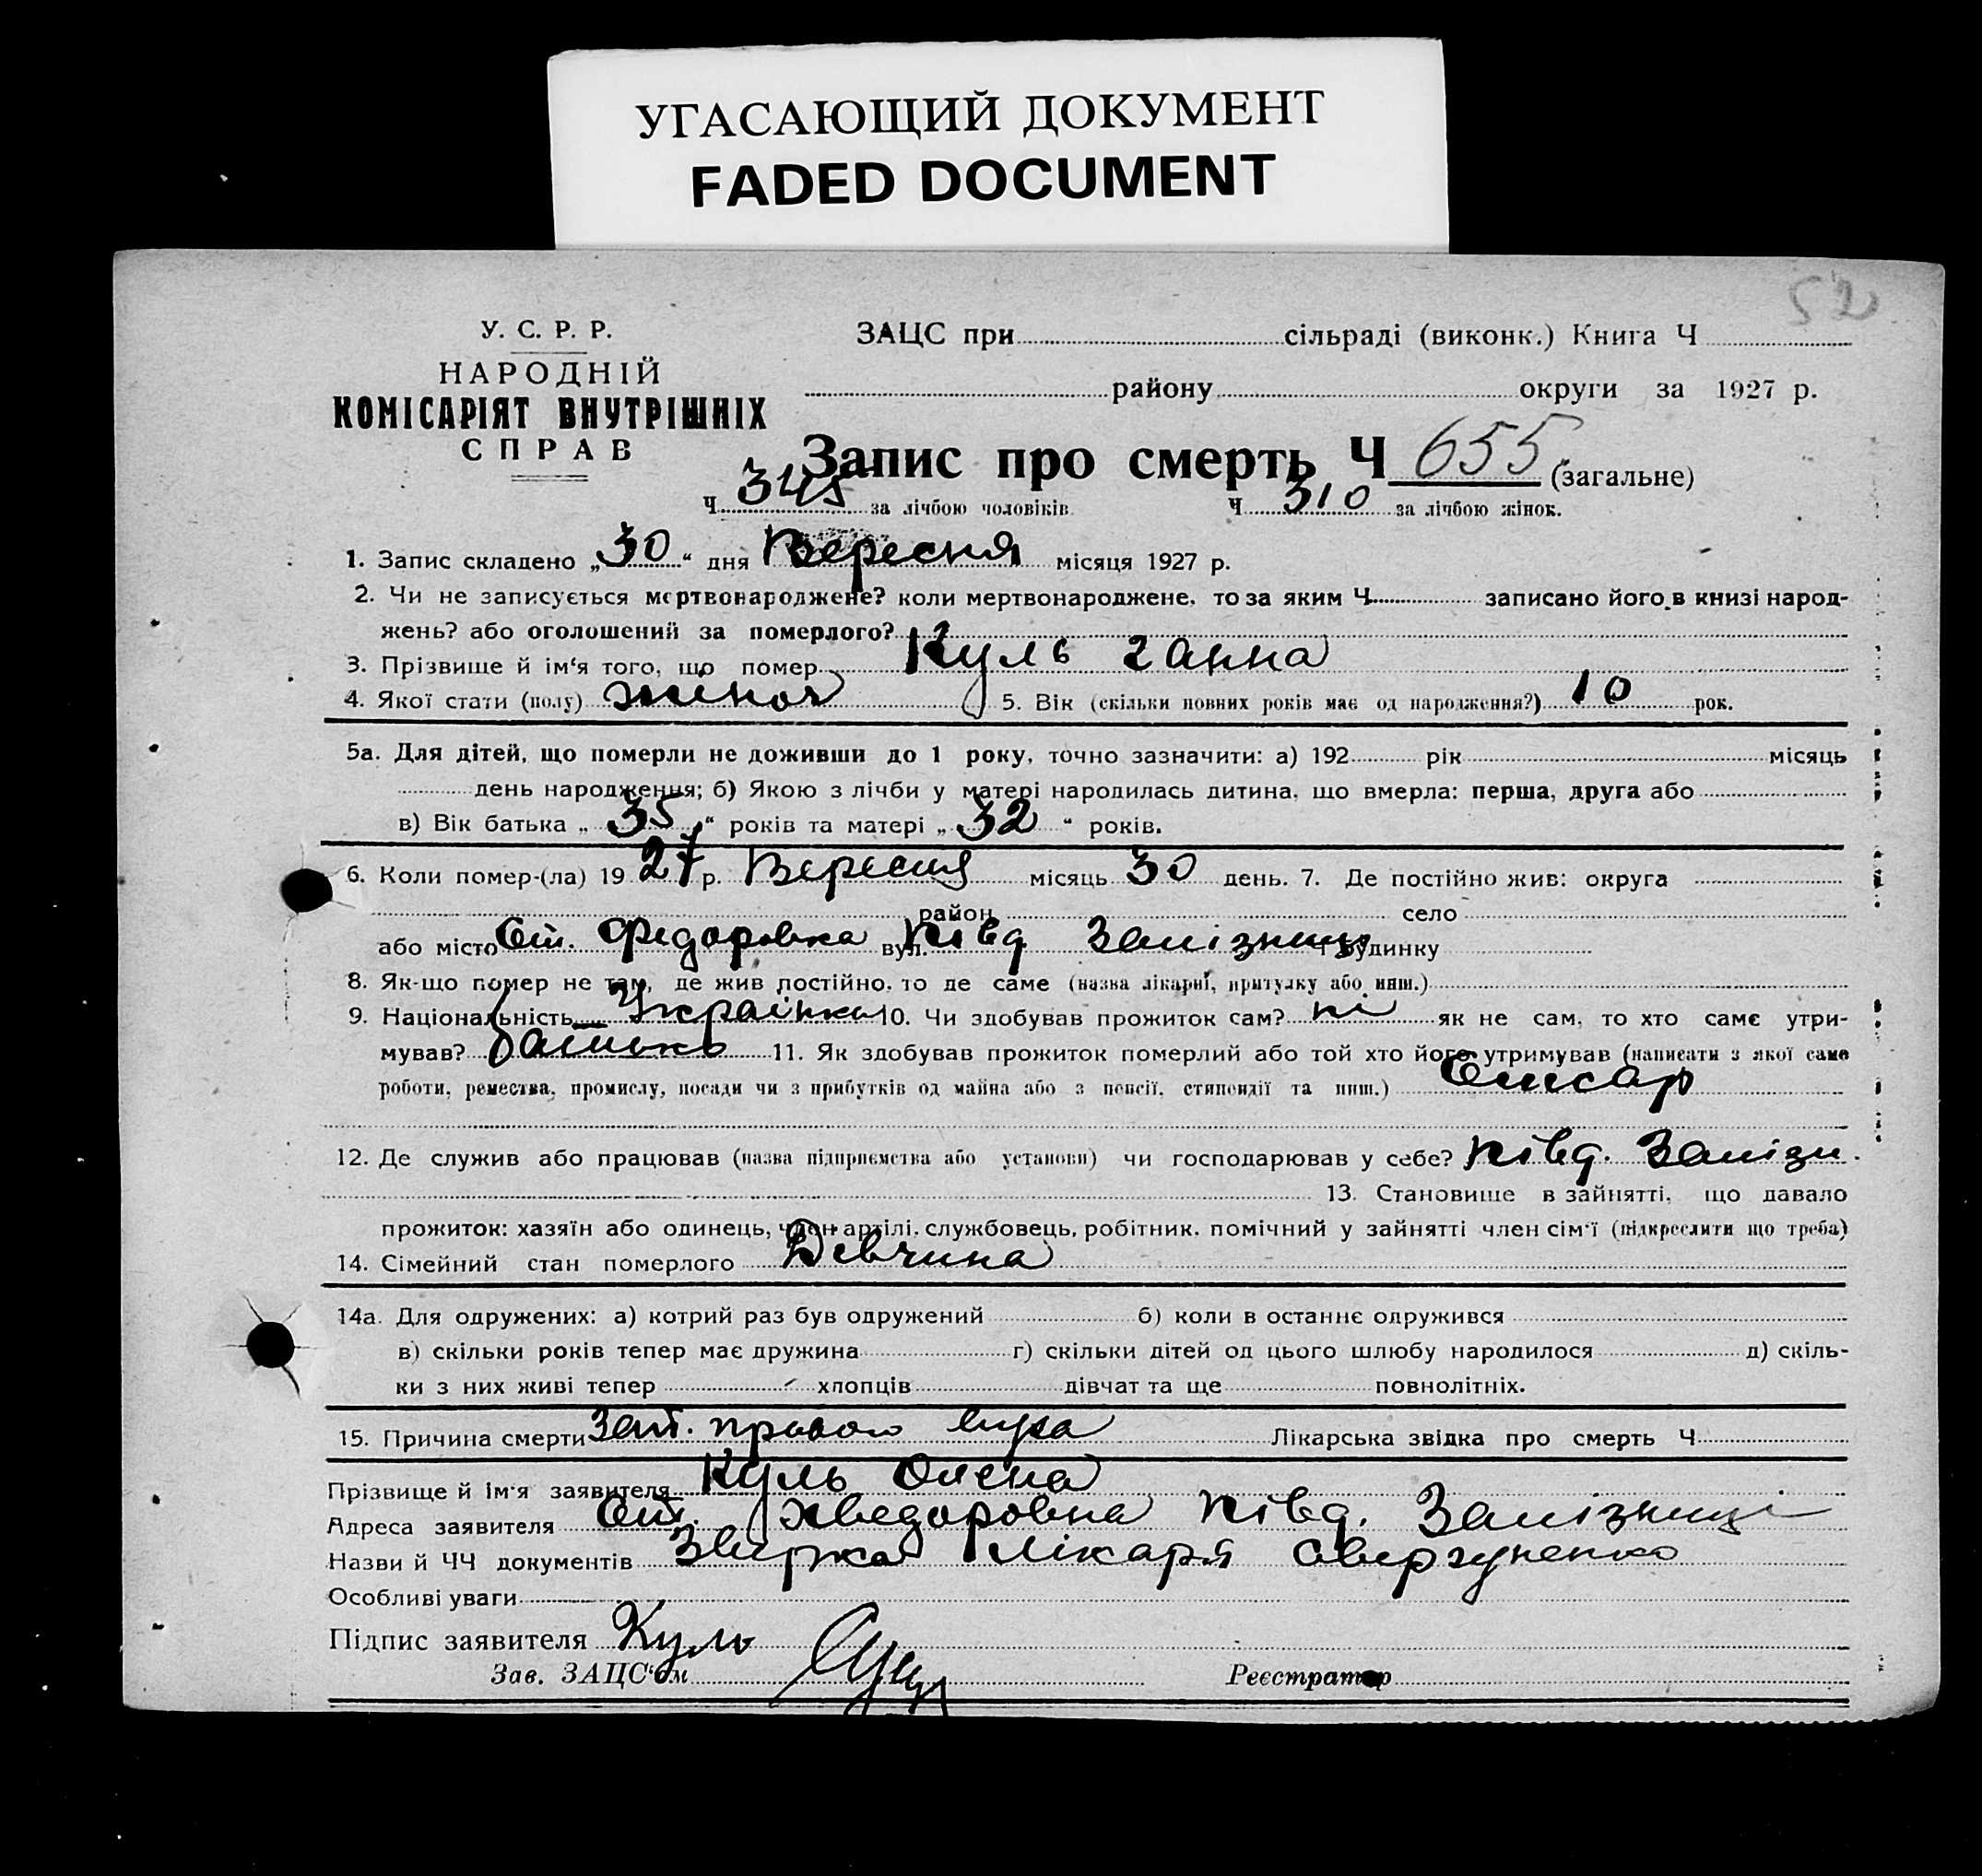 УГАСАЮЩИЙ ДОКУМЕНТ
FADED DOCUMENT
52
У. С. Р. Р.
НАРОДНІЙ
КОМІСАРІЯТ ВНУТРІШНІХ
СПРАВ
ЗАЦС при сільраді (виконк.) Книга Ч
району округи за 1927 р.
Запис про смерть Ч 655 (загальне)
Ч 345 за лічбою чоловіків Ч 310 за лічбою жінок.
1. Запис складено „30“ дня Вересня місяця 1927 р.
2. Чи не записується мертвонароджене? коли мертвонароджене, то за яким Ч записано його в книзі народ-
жень? або оголошений за померлого?
3. Прізвище й ім'я того, що помер Куль Ганна
4. Якої стати (полу) жіноч 5. Вік (скільки повних років має од народження?) 10 рок.
5а. Для дітей, що померли не доживши до 1 року, точно зазначити: а) 192 рік місяць
день народження; б) Якою з лічби у матері народилась дитина, що вмерла: перша, друга або
в) Вік батька „35“ років та матері „32“ років.
6. Коли помер-(ла) 1927 р. Вересня місяць 30 день. 7. Де постійно жив: округа
район село
або місто Ст. Федоровка вул. Півд Залізниці Ч будинку
8. Як-що помер не там, де жив постійно, то де саме (назва лікарні, притулку або инш.)
9. Національність Українка 10. Чи здобував прожиток сам? ні як не сам, то хто саме утри-
мував? батько 11. Як здобував прожиток померлий або той хто його утримував (написати з якої саме
роботи, ремества, промислу, посади чи з прибутків од майна або з пенсії, стипендії та инш.)
12. Де служив або працював (назва підприємства або установи) чи господарював у себе? Півд. Залізн.
13. Становище в зайнятті, що давало
прожиток: хазяїн або одинець, член артілі, службовець, робітник, помічний у зайнятті член сім'ї (підкреслити що треба)
14. Сімейний стан померлого Дівчина
14а. Для одружених: а) котрий раз був одружений б) коли в останнє одружився
в) скільки років тепер має дружина г) скільки дітей од цього шлюбу народилося д) скіль-
ки з них живі тепер хлопців дівчат та ще повнолітніх.
15. Причина смерти Зап. правого вуха Лікарська звідка про смерть Ч
Прізвище й ім'я заявителя Куль Олена
Адреса заявителя Ст. Хведоровка Півд. Залізниці
Назви й ЧЧ документів лікаря
Особливі уваги
Підпис заявителя Куль
Зав. ЗАЦС'ом Реєстратор